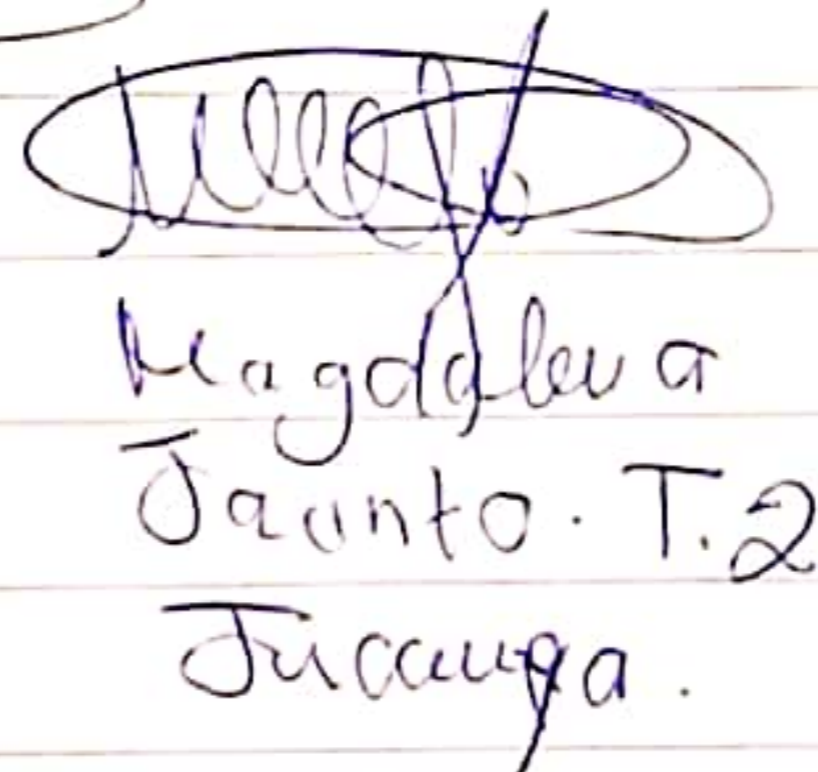 Magdalena
Jacinto. T.2
Jucanga.